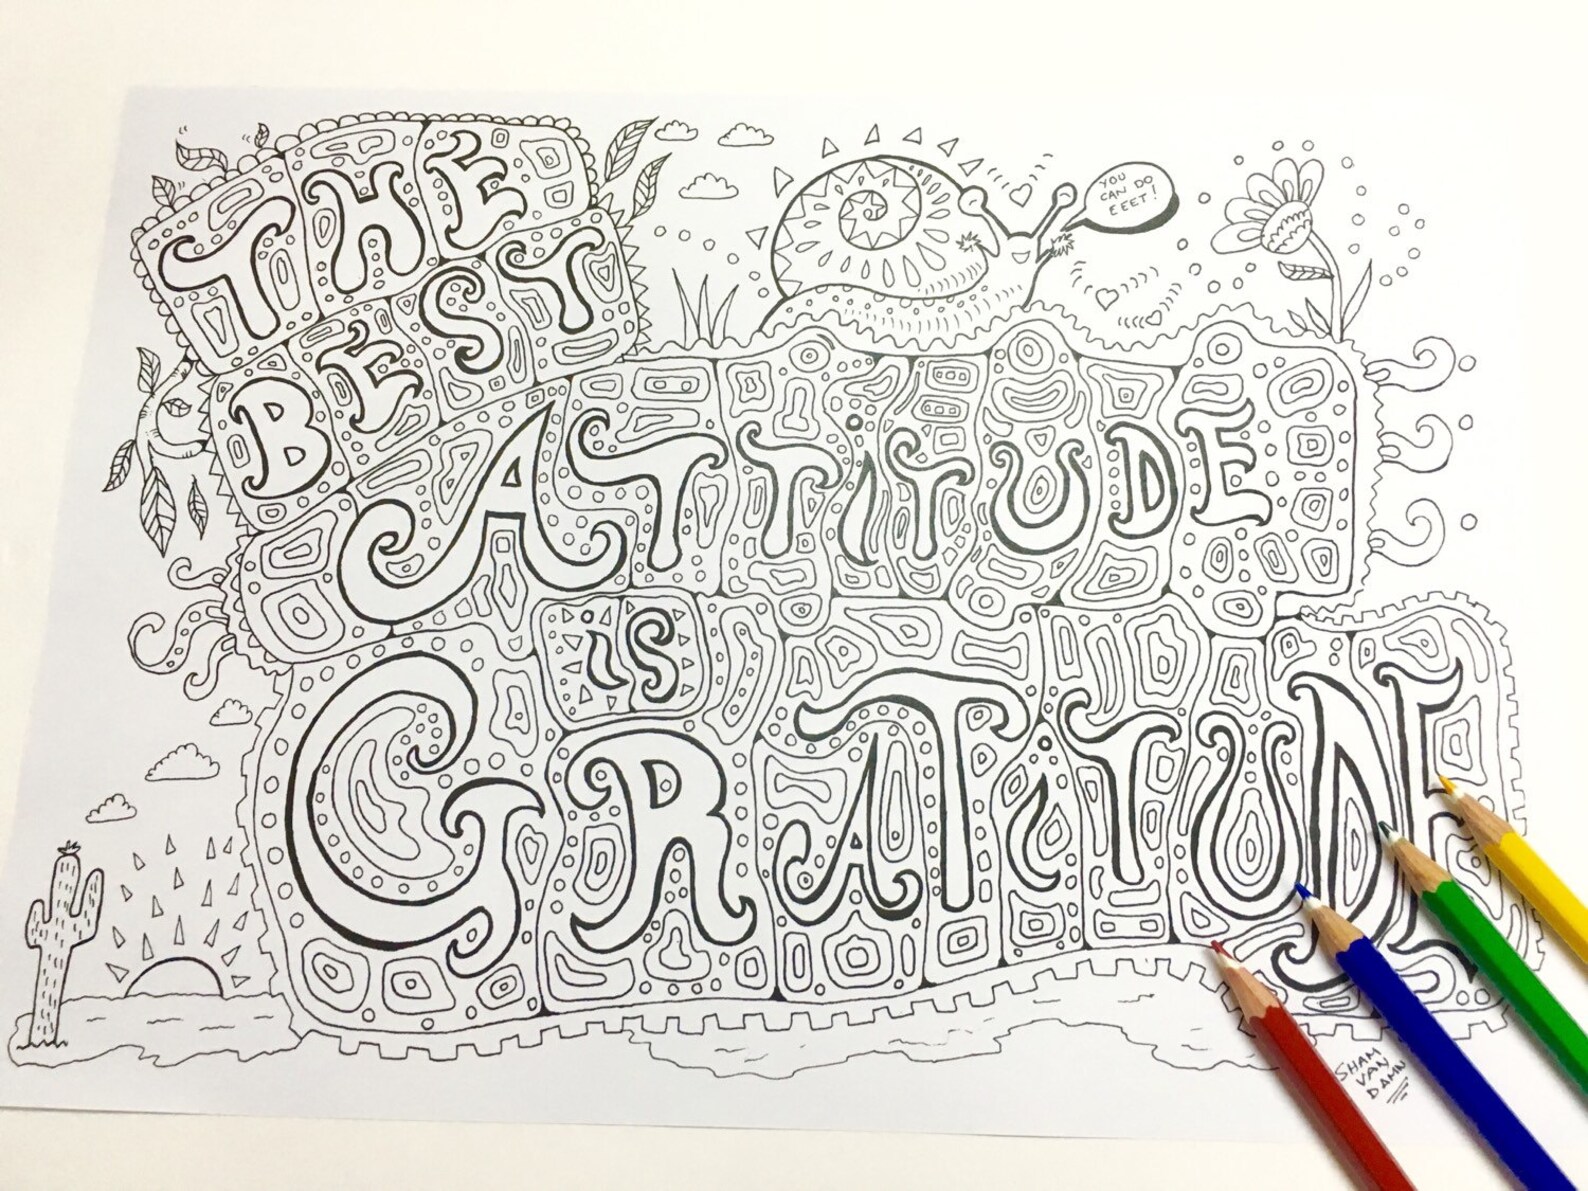 THE
BEST
ATTiTUDE
iS
GRATiTUDE
YOU
CAN DO
EEET!
SHAM
VAN
DAMN